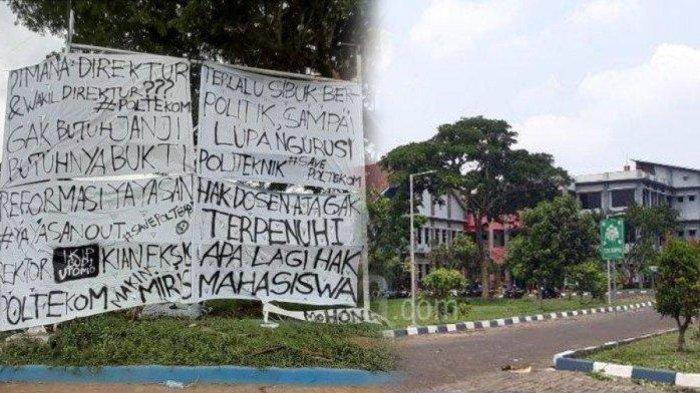 DIMANA DIREKTUR
& WAKIL DIREKTUR???
#POLTEKOM
GAK BUTUH JANJI
BUTUHNYA BUKTI
REFORMASI YAYASAN
#YAYASAN OUT
#SAVEPOLTEKOM
KIAN FKSK
MAKIN MIRIS
POLTEKOM
TERLALU SIBUK BER
POLITIK SAMPAI
LUPA NGURUSI
POLITEKNIK #SAVE
POLTEKOM
HAK DOSEN AJA GAK
TERPENUHI
APA LAGI HAK
MAHASISWA
MOHON
.com